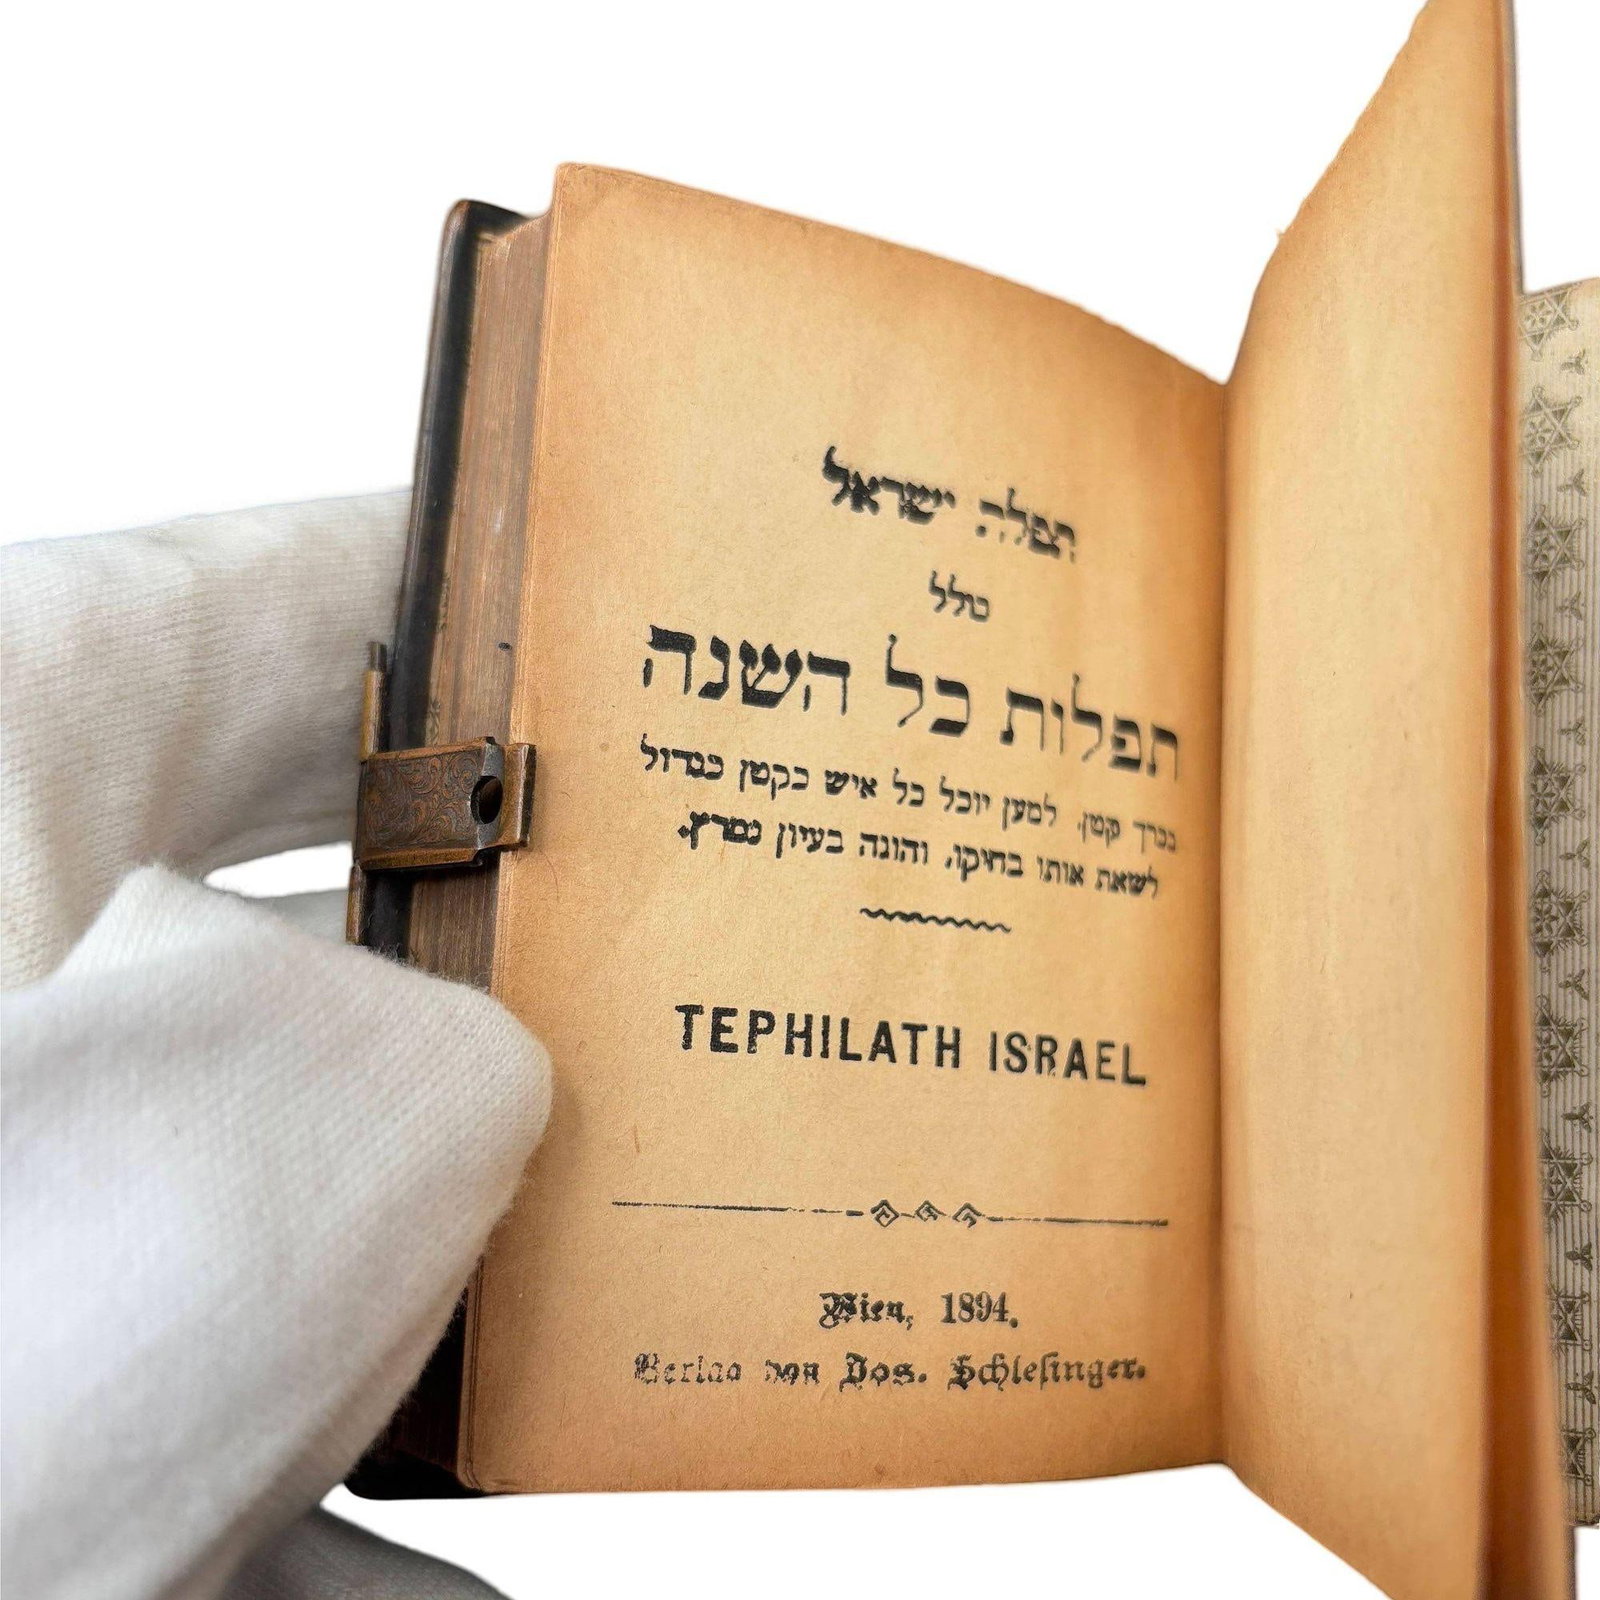 תפלה ישראל
כולל
תפלות כל השנה
בכרך קטן, למען יוכל כל איש כקטן כגדול
לשאת אותו בחיקו, והוגה בעיון נמרץ.
TEPHILATH ISRAEL
Wien, 1894.
Verlag von Jos. Schlesinger.